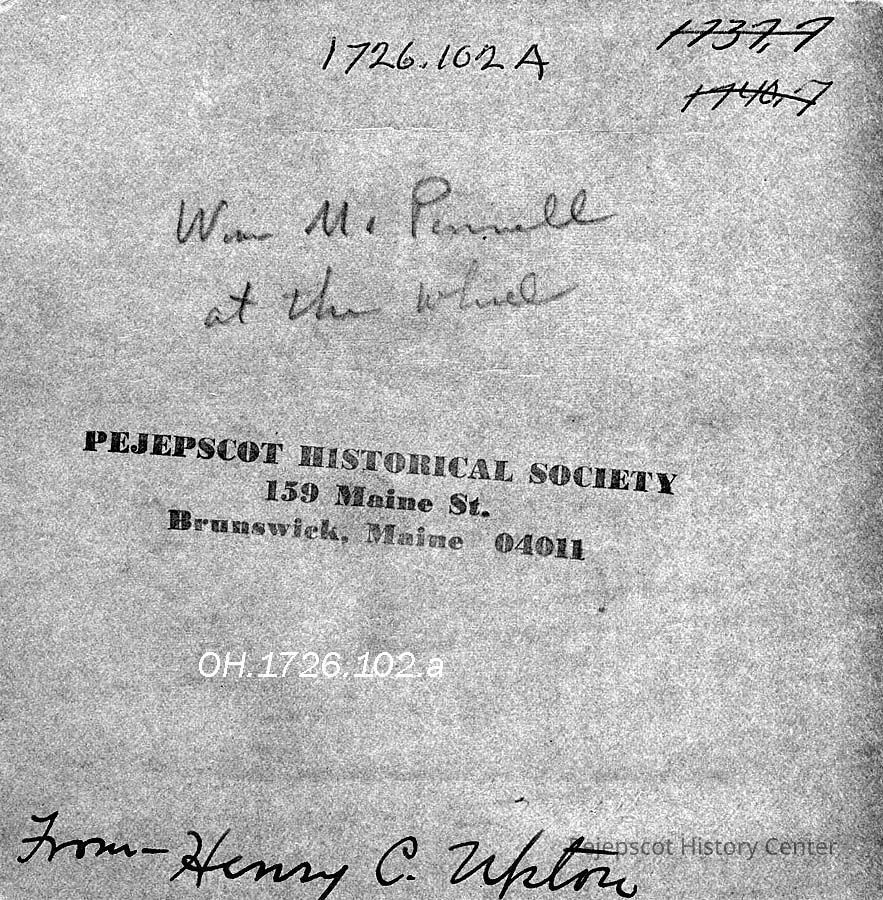 1726.102A
1737.7
1740.7
Wm M. Pennell
at the Wheel
PEJEPSCOT HISTORICAL SOCIETY
159 Maine St.
Brunswick, Maine 04011
OH.1726.102.a
From - Henry C. Upton
Pejepscot History Center